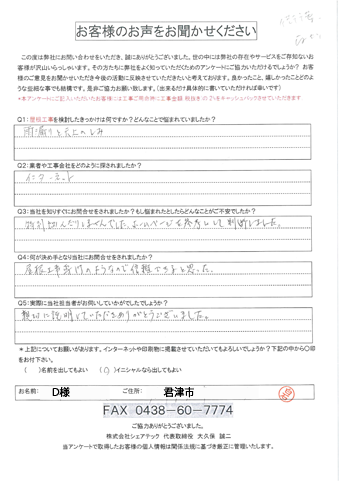 お客様のお声をお聞かせください
この度は弊社にお問い合わせをいただき、誠にありがとうございました。世の中には弊社の存在やサービスをご存知ないお
客様が沢山いらっしゃいます。その方たちに弊社をよく知っていただくためのアンケートにご協力いただけるでしょうか？ お客
様のご意見をお聞かせいただき今後の活動に反映させていただきたいと考えております。良かったこと、嬉しかったことどのよ
うな些細な事でも結構です。是非ご協力お願い致します。（出来るだけ具体的に書いていただければ幸いです）
Q1：屋根工事を検討したきっかけは何ですか？どんなことで悩まれていましたか？
雨漏りと天井のしみ
Q2：業者や工事会社をどのように探されましたか？
インターネット
Q3：当社を知りすぐにお問合せをされましたか？もし悩まれたとしたらどんなことがご不安でしたか？
ホームページを参考として判断しました。
Q4：何が決め手となり当社にお問合せをされましたか？
屋根工事専門のようなので信頼できると思った。
Q5：実際に当社担当者がお伺いしていかがでしたでしょうか？
親切に説明していただきありがとうございました。
＊上記についてお願いがあります。インターネットや印刷物に掲載させていただいてもよろしいでしょうか？下記の中から〇印
をお付下さい。
（ ）名前を出してもよい （〇）イニシャルなら出してもよい
お名前： D様 ご住所： 君津市
FAX 0438-60-7774
ご協力ありがとうございました。
株式会社シェアテック 代表取締役 大久保 誠二
当アンケートで取得したお客様の個人情報は関係法規に基づき厳正に管理いたします。